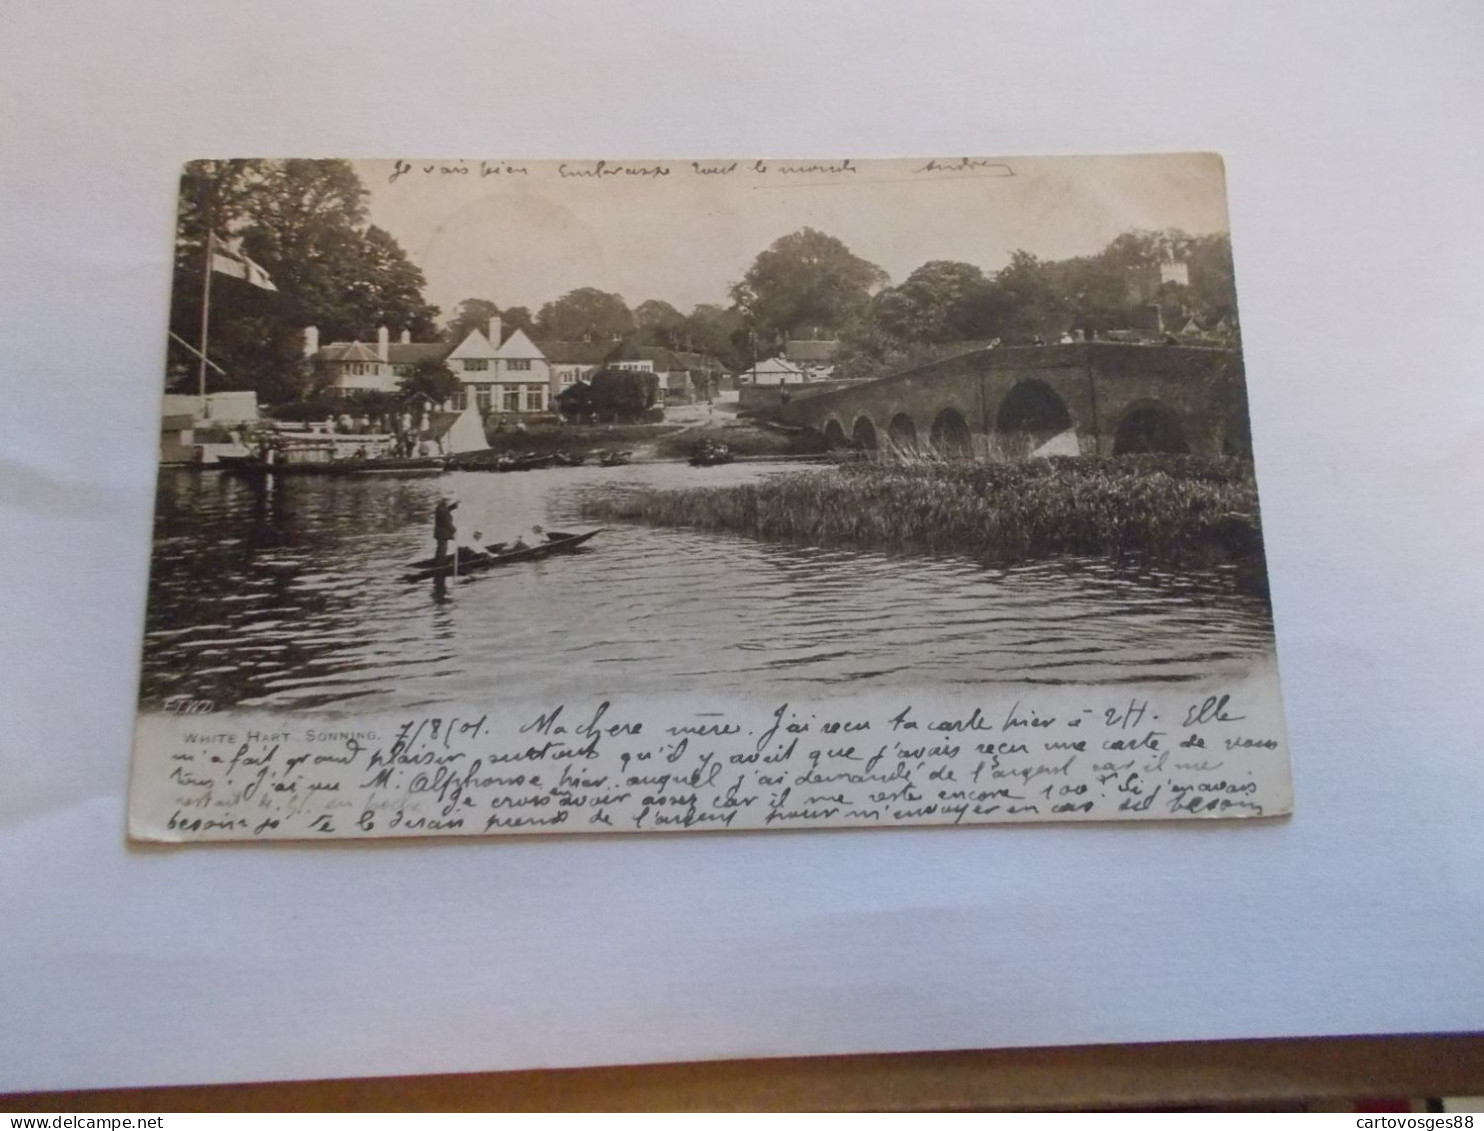 Je vais bien Embrasse tout le monde André
F.T.W.D.
WHITE HART. SONNING.
7/8/01. Ma chere mère. J'ai recu ta carte hier à 2H. Elle
m'a fait grand plaisir surtout qu'il y avait que j'avais reçu une carte de vous
tous. J'ai vu M. Alphonse hier auquel j'ai demandé de l'argent car il me
restait 4 en poche Je crois en avoir assez car il me reste encore 100 Si j'en avais
besoin je te le dirais prends de l'argent pour m'envoyer en cas de besoin
cartovosges88